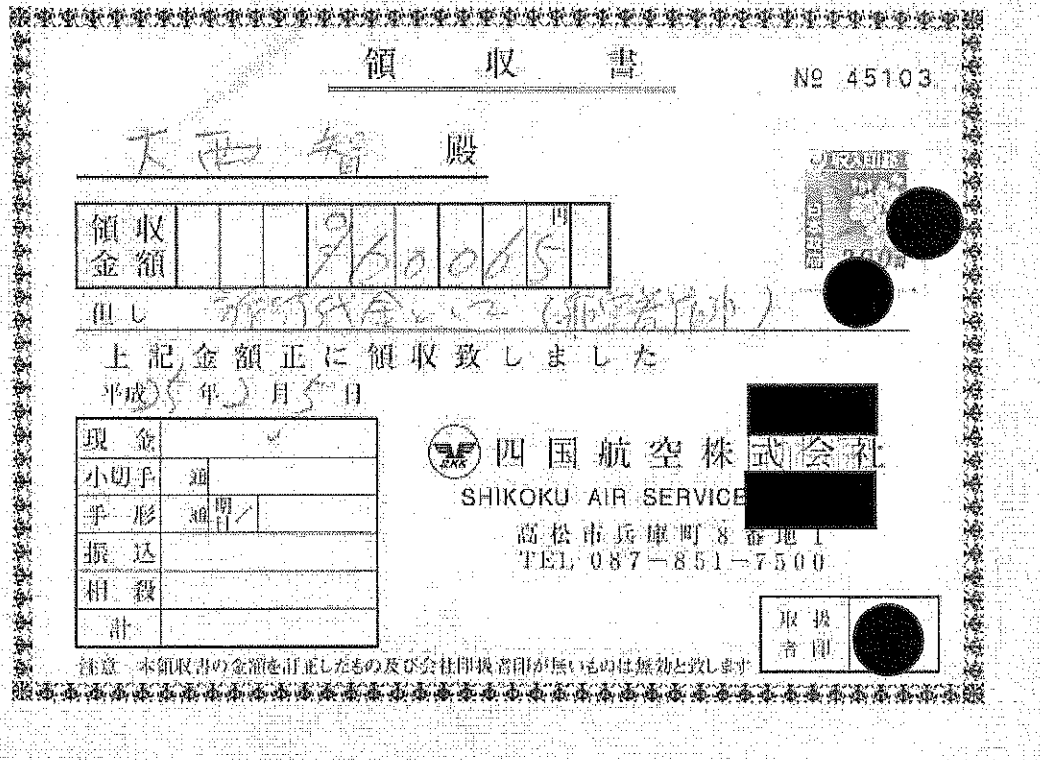 領収書
№ 45103
大西 智 殿
収入印紙
200
領収金額 960065 円
但し 旅行代金として (
上記金額正に領収致しました
平成25年2月5日
現金 ✓
小切手 通
手形 通 期日/
振込
相殺
計
SKK
四国航空株式会社
SHIKOKU AIR SERVICE
高松市兵庫町8番地1
TEL 087-851-7500
取扱者印
注意 本領収書の金額を訂正したもの及び会社印扱者印が無いものは無効と致します